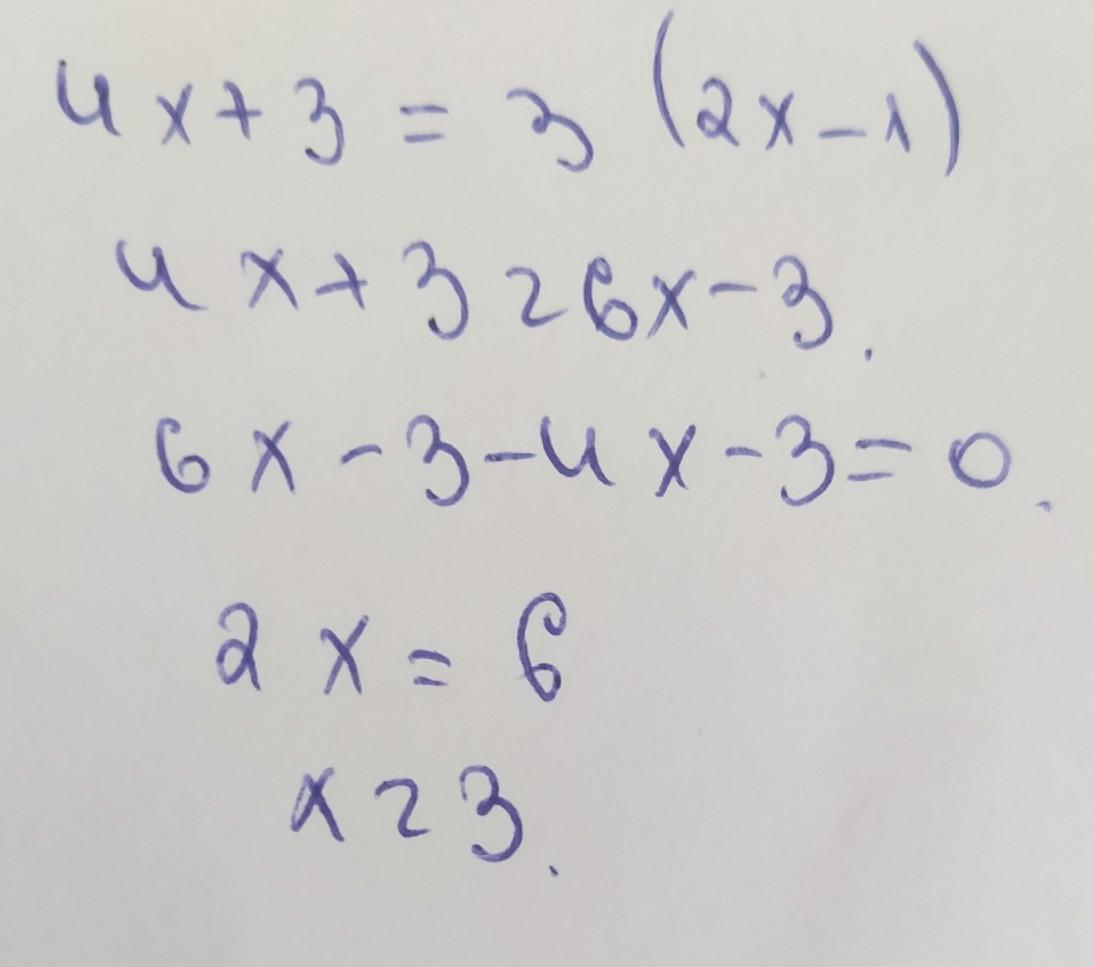 4x+3 = 3 (2x-1)
4x+3=6x-3.
6x-3-4x-3=0.
2x=6
x=3.